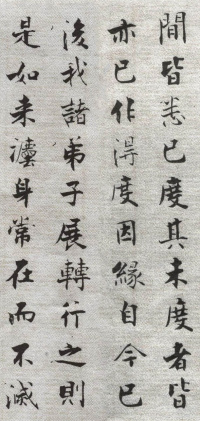 間皆悉已度其未度者皆
亦已作得度因緣自今已
後我諸弟子展轉行之則
是如来灋身常在而不滅